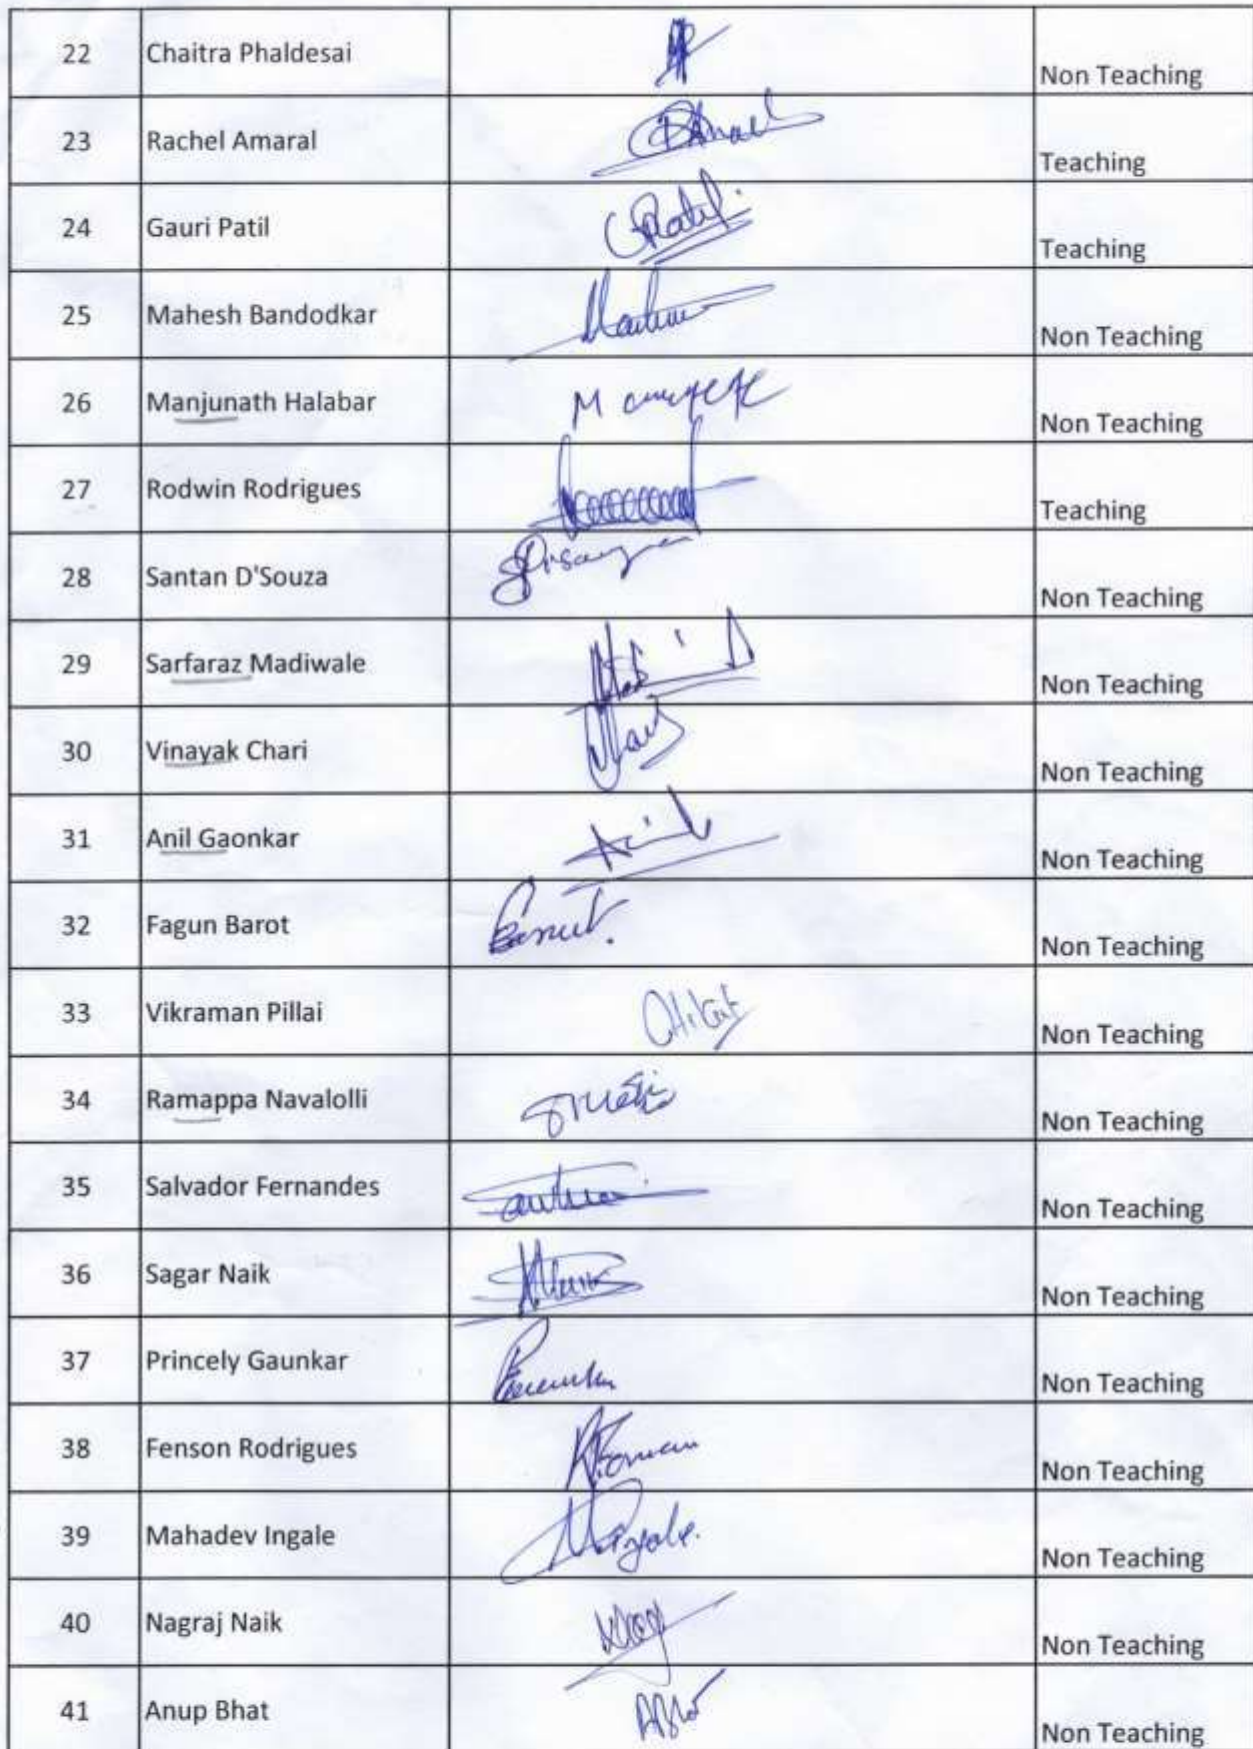 22 Chaitra Phaldesai Non Teaching
23 Rachel Amaral Teaching
24 Gauri Patil GPatil. Teaching
25 Mahesh Bandodkar Non Teaching
26 Manjunath Halabar Non Teaching
27 Rodwin Rodrigues Teaching
28 Santan D'Souza Non Teaching
29 Sarfaraz Madiwale Non Teaching
30 Vinayak Chari Non Teaching
31 Anil Gaonkar Non Teaching
32 Fagun Barot Non Teaching
33 Vikraman Pillai Non Teaching
34 Ramappa Navalolli Non Teaching
35 Salvador Fernandes Non Teaching
36 Sagar Naik Non Teaching
37 Princely Gaunkar Non Teaching
38 Fenson Rodrigues Non Teaching
39 Mahadev Ingale Non Teaching
40 Nagraj Naik Non Teaching
41 Anup Bhat Non Teaching